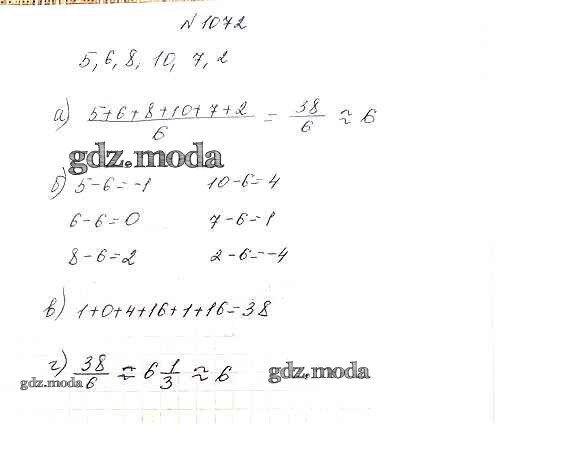 № 1072
5, 6, 8, 10, 7, 2
а) 5+6+8+10+7+2/6 = 38/6 ≈ 6
gdz.moda
б) 5-6=-1 10-6=4
6-6=0 7-6=1
8-6=2 2-6=-4
в) 1+0+4+16+1+16=38
г) 38/6 ≈ 6 1/3 ≈ 6
gdz.moda gdz.moda